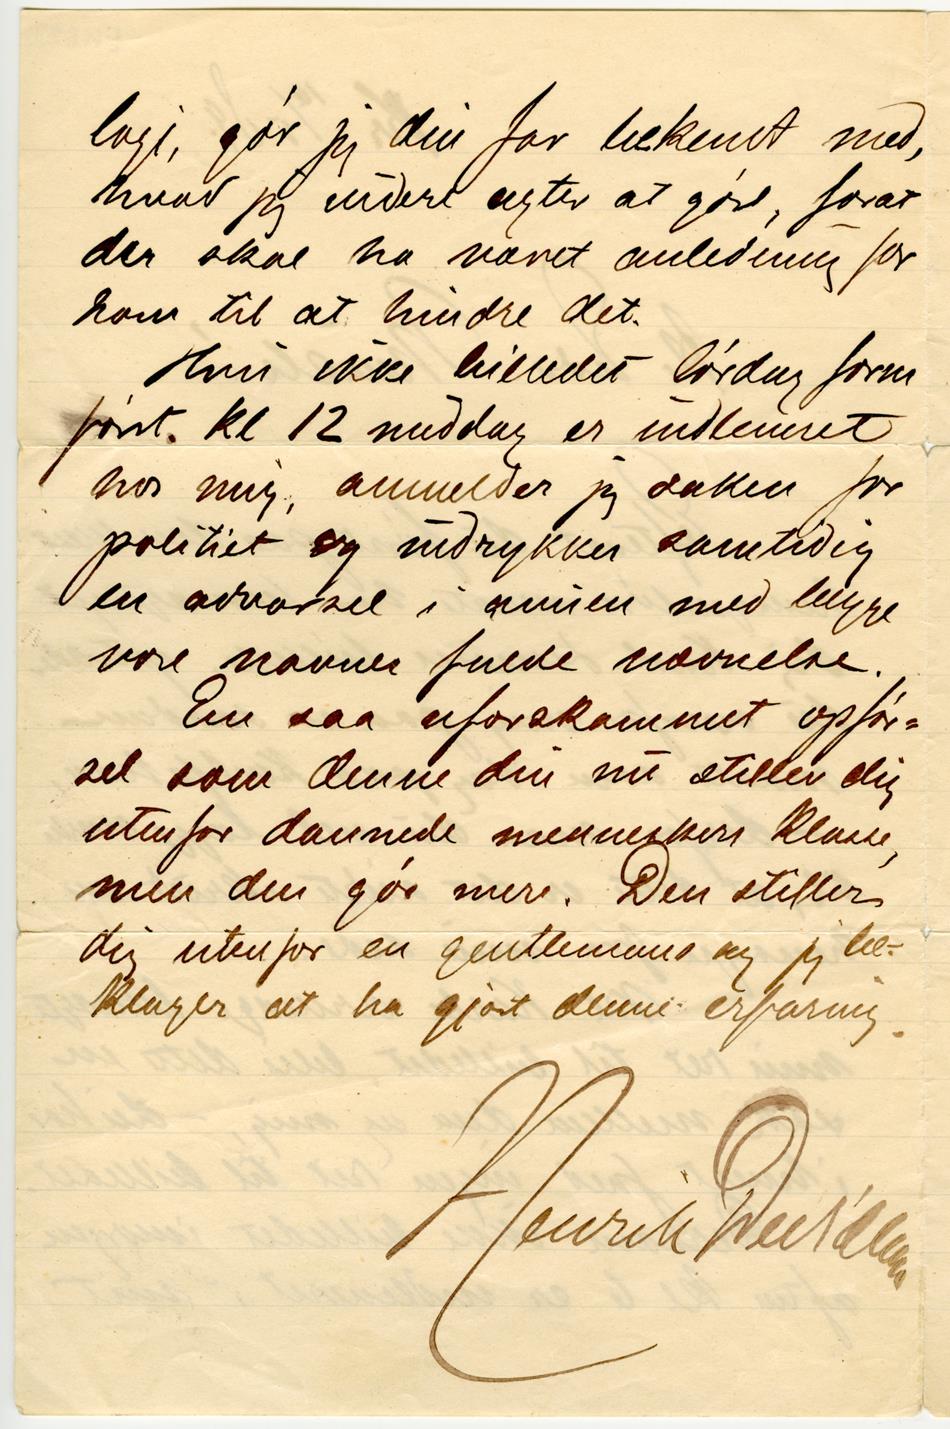 logi, gör jeg din far bekendt med,
hvad jeg videre agter at göre, forat
der skal ha været anledning for
ham til at hindre det.
Hvis ikke billedet lördag form
först. kl 12 middag er indleveret
hos mig, anmelder jeg saken for
politiet og indrykker samtidig
en advarsel i avisen med begge
vore navnes fulde nævnelse.
En saa uforskammet opför=
sel som denne din nu stiller dig
utenfor dannede menneskers klasse,
men den gör mere. Den stiller
dig utenfor en gentlemans og jeg be-
klager at ha gjort denne erfaring.
Henrik